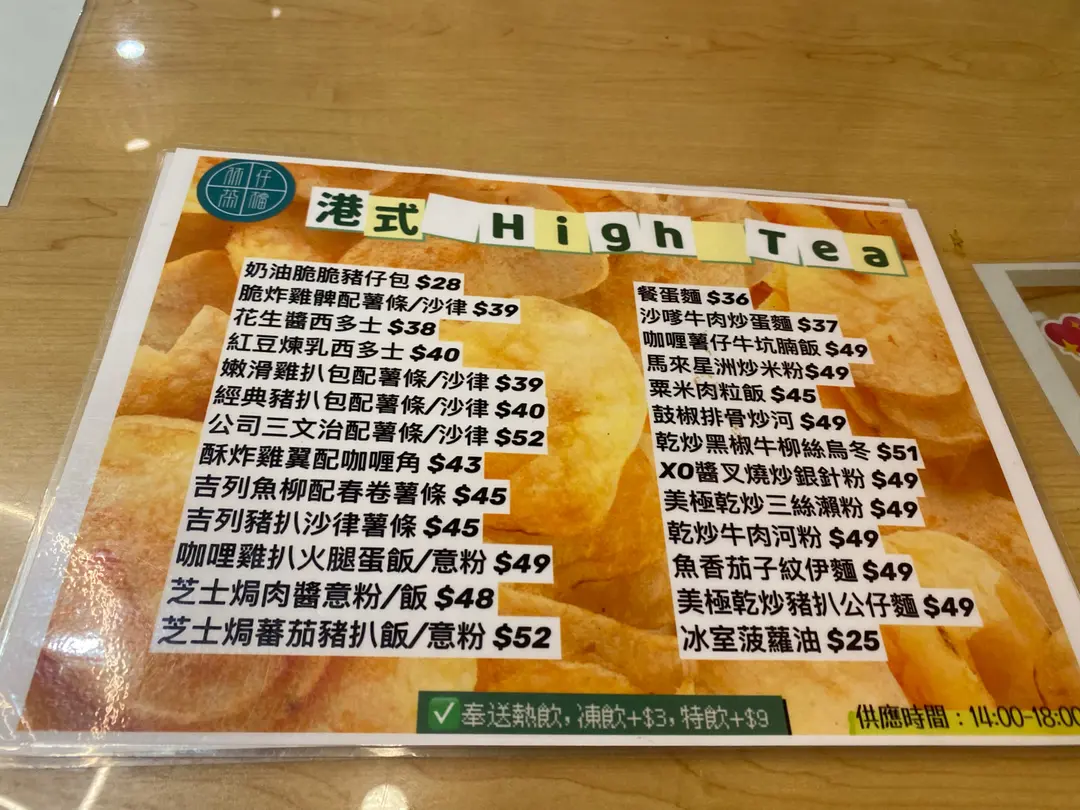 港式 High Tea
奶油脆脆豬仔包 $28
脆炸雞髀配薯條/沙律 $39
花生醬西多士 $38
紅豆煉乳西多士 $40
嫩滑雞扒包配薯條/沙律 $39
經典豬扒包配薯條/沙律 $40
公司三文治配薯條/沙律 $52
酥炸雞翼配咖喱角 $43
吉列魚柳配春卷薯條 $45
吉列豬扒沙律薯條 $45
咖哩雞扒火腿蛋飯/意粉 $49
芝士焗肉醬意粉/飯 $48
芝士焗蕃茄豬扒飯/意粉 $52
餐蛋麵 $36
沙嗲牛肉炒蛋麵 $37
咖喱薯仔牛坑腩飯 $49
馬來星洲炒米粉$49
粟米肉粒飯 $45
鼓椒排骨炒河 $49
乾炒黑椒牛柳絲烏冬 $51
XO醬叉燒炒銀針粉 $49
美極乾炒三絲瀨粉 $49
乾炒牛肉河粉 $49
魚香茄子紋伊麵 $49
美極乾炒豬扒公仔麵 $49
冰室菠蘿油 $25
奉送熱飲, 凍飲+$3, 特飲+$9
供應時間：14:00-18:00